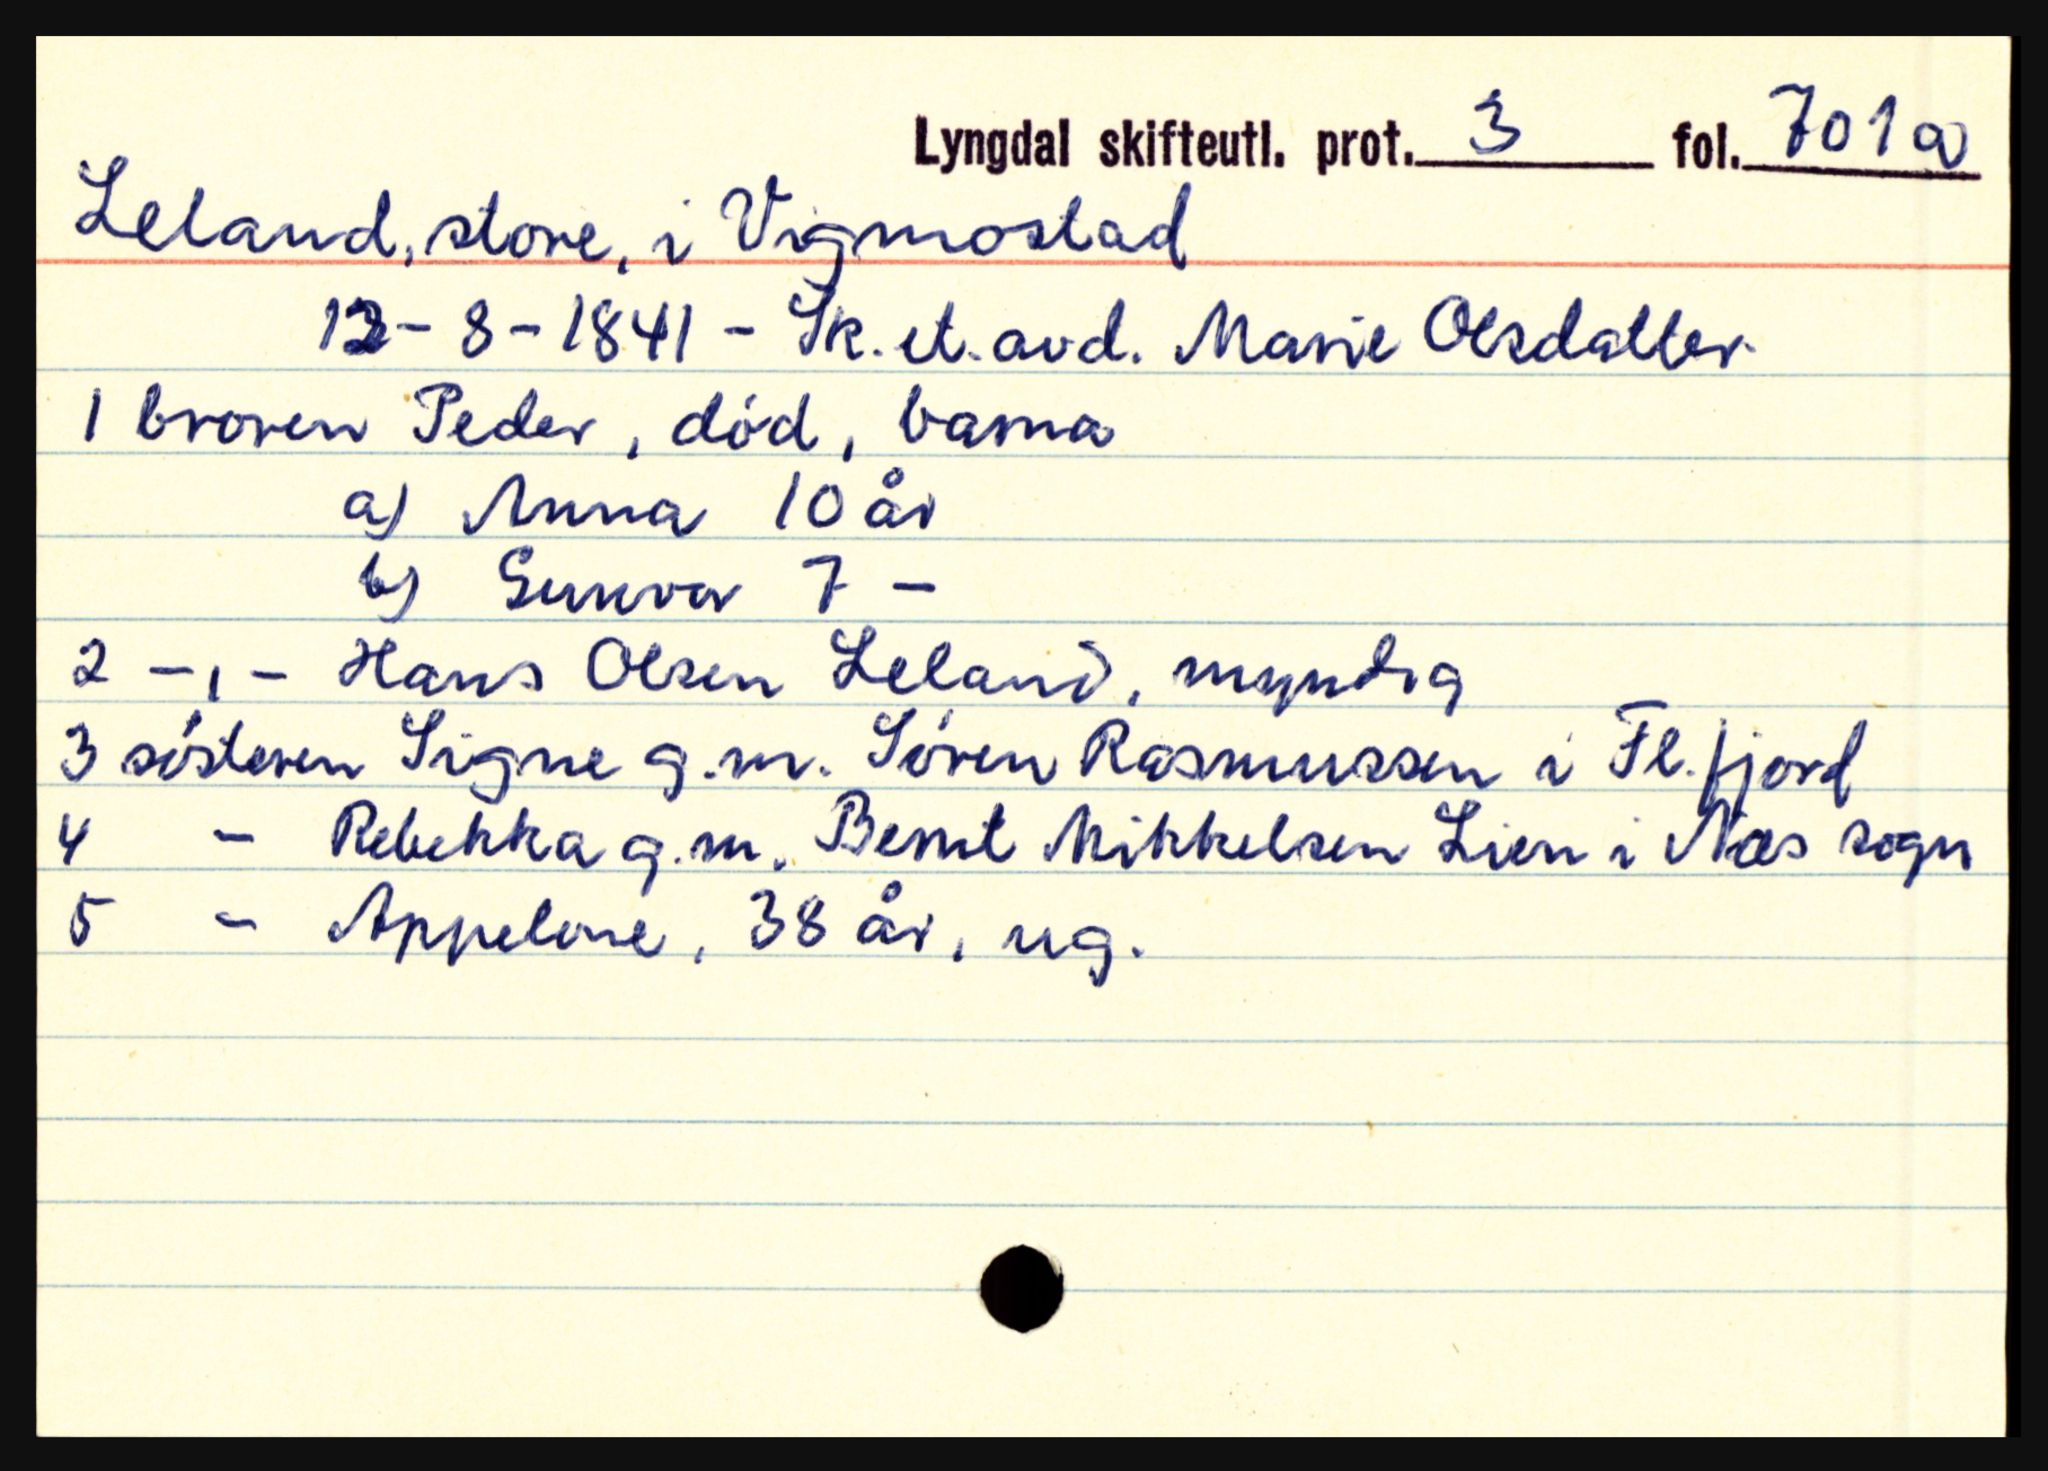 Lyngdal skifteutl. prot. 3 fol. 701a
Leland, store, i Vigmostad
12-8-1841 - Sk. et. avd. Marie Olsdatter
1 broren Peder, død, barna
a) Anna 10 år
b) Gunvor 7 -
2 -,- Hans Olsen Leland, myndig
3 søsteren Signe g.m. Søren Rasmussen i Fl.fjord
4 - Rebekka g.m. Bernt Mikkelsen Lien i Næs sogn
5 - Appelone, 38 år, ug.